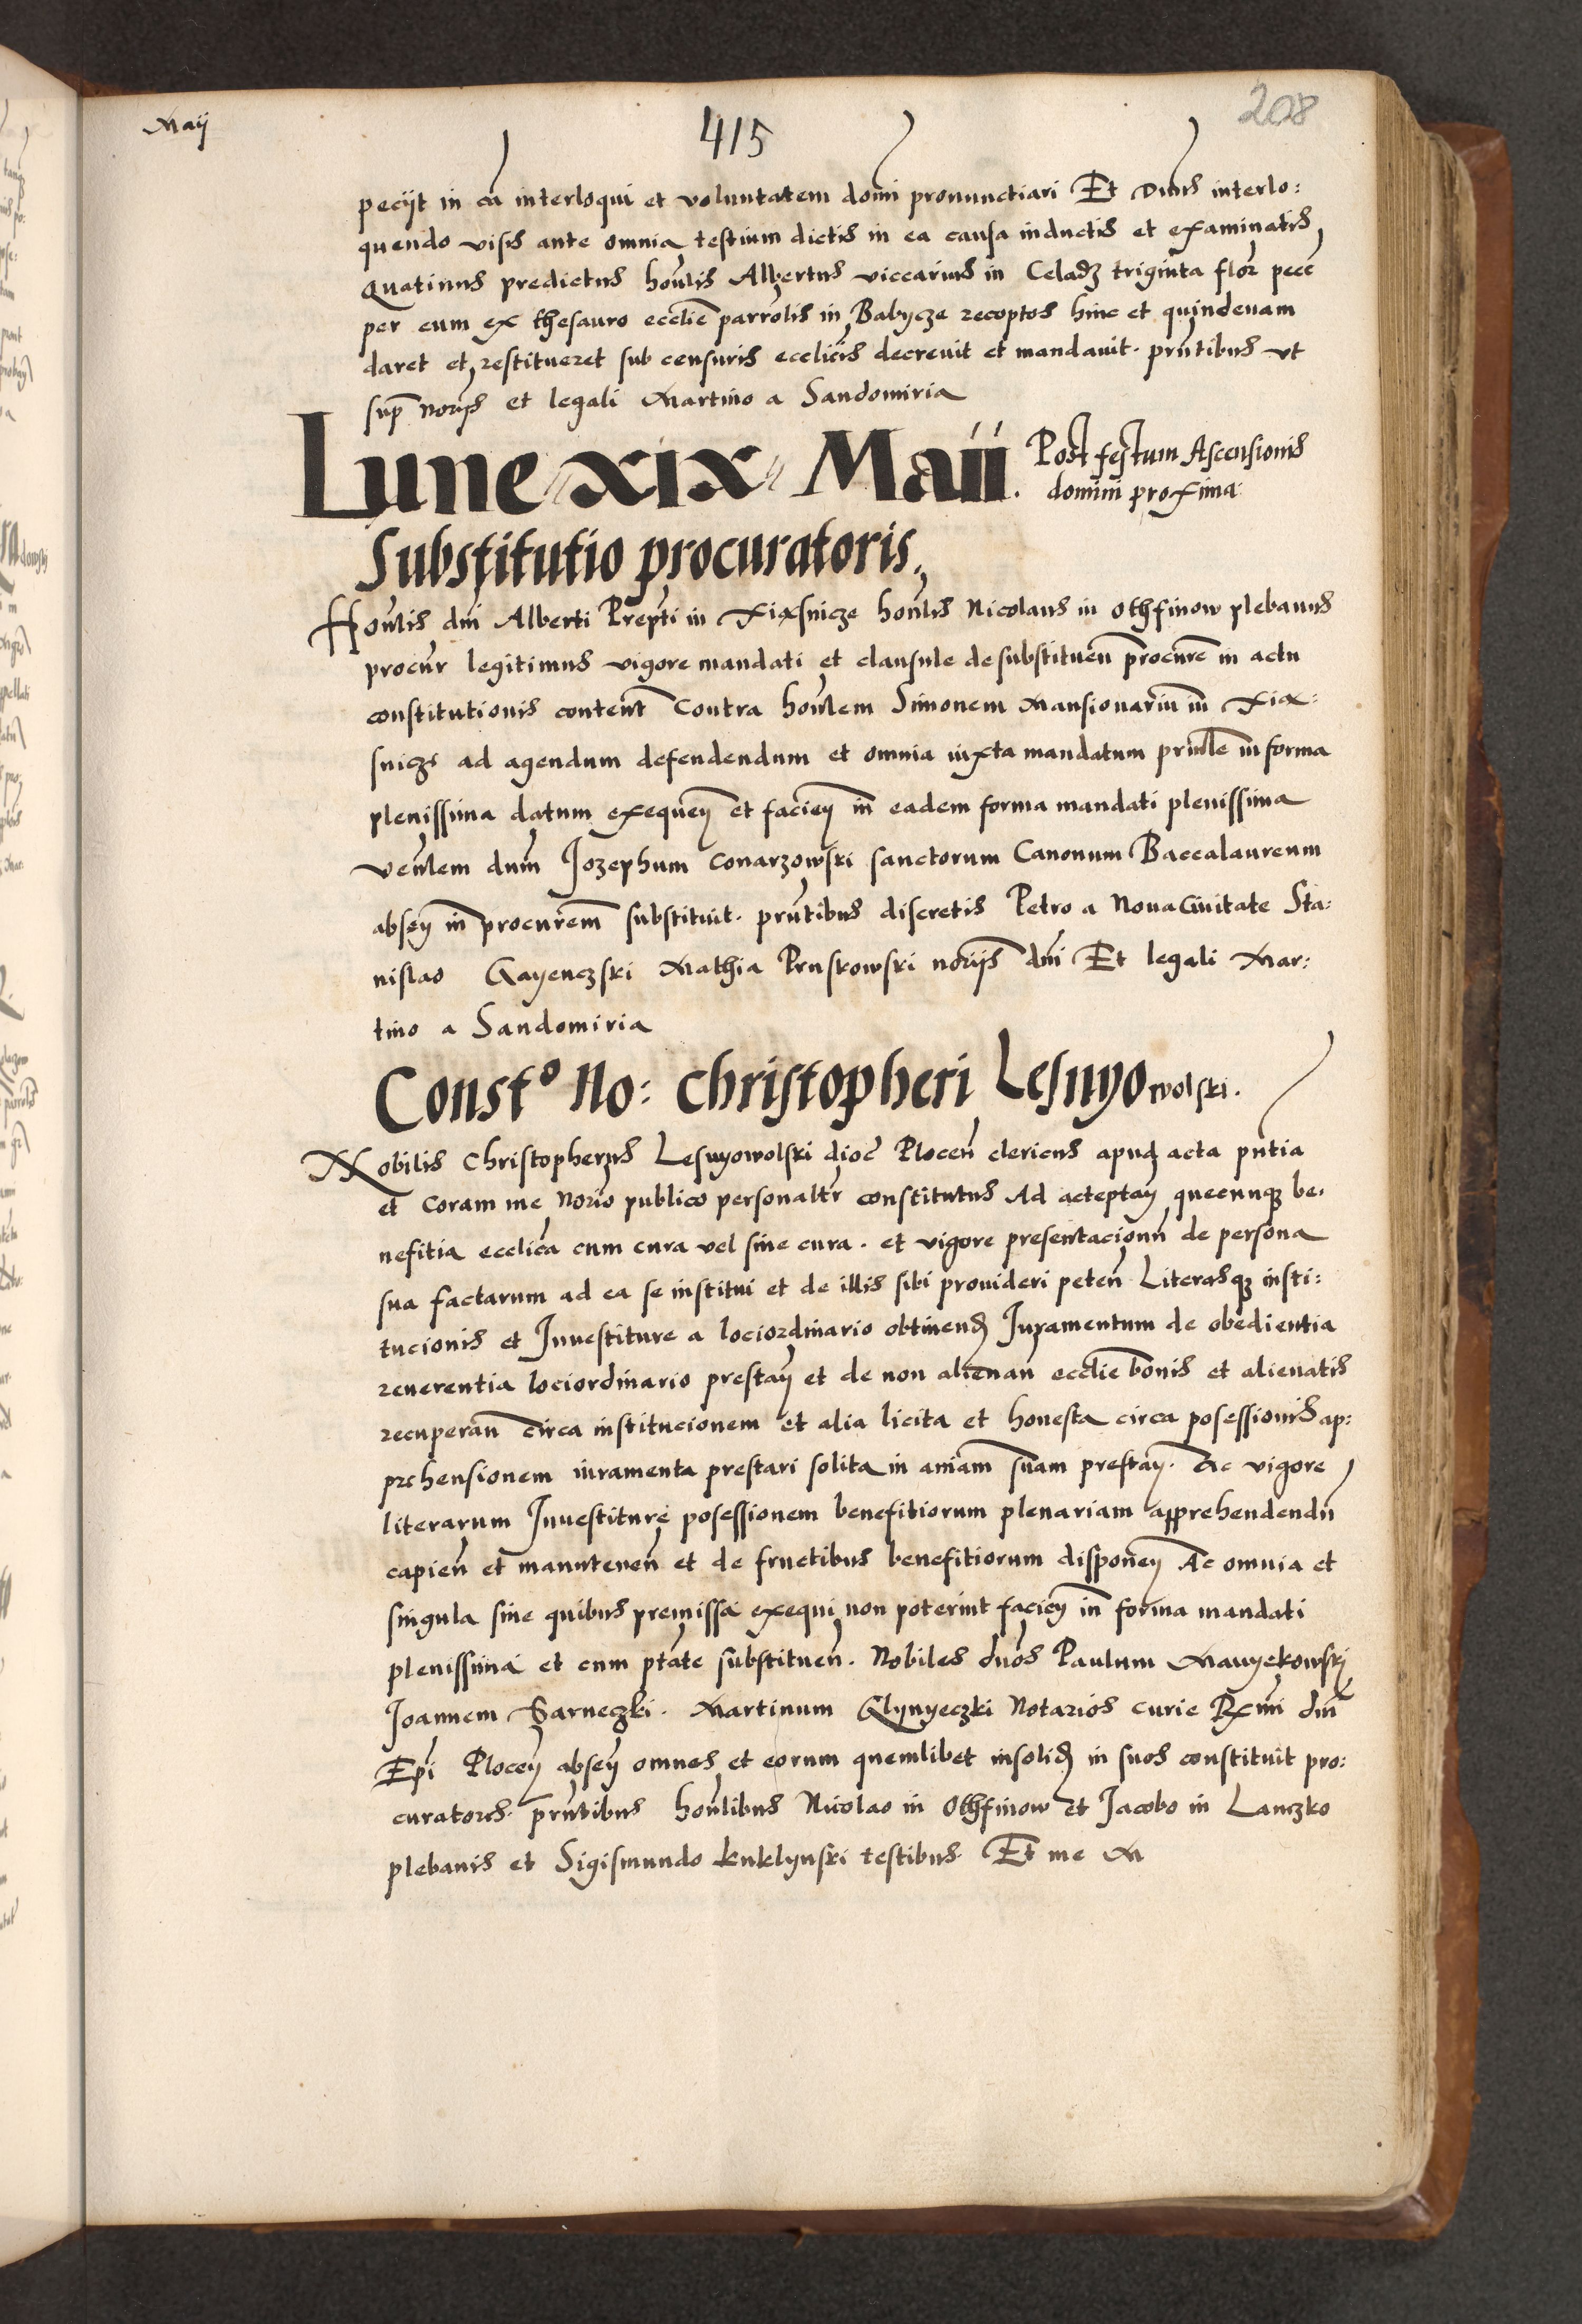 Maij
415
208
peciit in ea interloqui et voluntatem domi pronunctiari Et Dnus interlo:
quendo visis ante omnia testium dictis in ea causa inductis et examinatis
Quatinus predictus honlis Albertus viccarius in Celadz triginta flor pecc
per eum ex thesauro ecclie parrolis in Babycze receptos hinc et quindenam
daret et restitueret sub censuris eccliciis decrevit et mandavit. pntibus vt
sup noriis et legali Martino a Sandomiria
Lune XIX Maii. Post festum Ascensionis
domini proxima
Substitutio procuratoris.
Honlis dni Alberti Prepti in Xixsnicze honlis Nicolaus in Othfinow plebanus
procur legitimus vigore mandati et clausule de substituen procure in actu
constitutionis content Contra honlem Simonem Mansionariu in Xix:
snicze ad agendum defendendum et omnia iuxta mandatum prinle in forma
plenissima datum exequen et facien in eadem forma mandati plenissima
venlem dnm Jozephum Conarzowski sanctorum Canonum Baccalaureum
absen in procurem substituit. pntibus discretis Petro a Nova Civitate Sta:
nislao Gayenczski Mathia Pruskowski noriis dni Et legali Mar:
tino a Sandomiria
Const° No: Christopheri Lesnyowolski.
Nobilis Christopherus Lesnyowolski dioc Plocen clericus apud acta pntia
et Coram me Norio publico personaltr constitutus Ad acceptan quecunq be:
nefitia ecclica cum cura vel sine cura. et vigore presentacionu de persona
sua factarum ad ea se institui et de illis sibi provideri peten Literasq insti:
tucionis et Investiture a lociordinario obtinend Juramentum de obedientia
reverentia lociordinario prestan et de non alienan ecclie bonis et alienatis
recuperan circa institucionem et alia licita et honesta circa posessionis ap:
prehensionem iuramenta prestari solita in aniam suam prestan. Ac vigore
literarum Investiture posessionem benefitiorum plenariam apprehendendu
capien et manutenen et de fructibus benefitiorum disponen Ac omnia et
singula sine quibus premissa exequi non poterint facien in forma mandati
plenissima et cum ptate substituen. Nobiles dnos Paulum Mauyekowski
Joannem Sarneczki. Martinum Glynyeczki Notarios curie Rxmi dni
Epi Plocen absen omnes et eorum quemlibet insolid in suos constituit pro:
curatores. pntibus honlibus Nicolao in Othfinow et Jacobo in Lanczko
plebanis et Sigismundo Kuklynski testibus Et me M